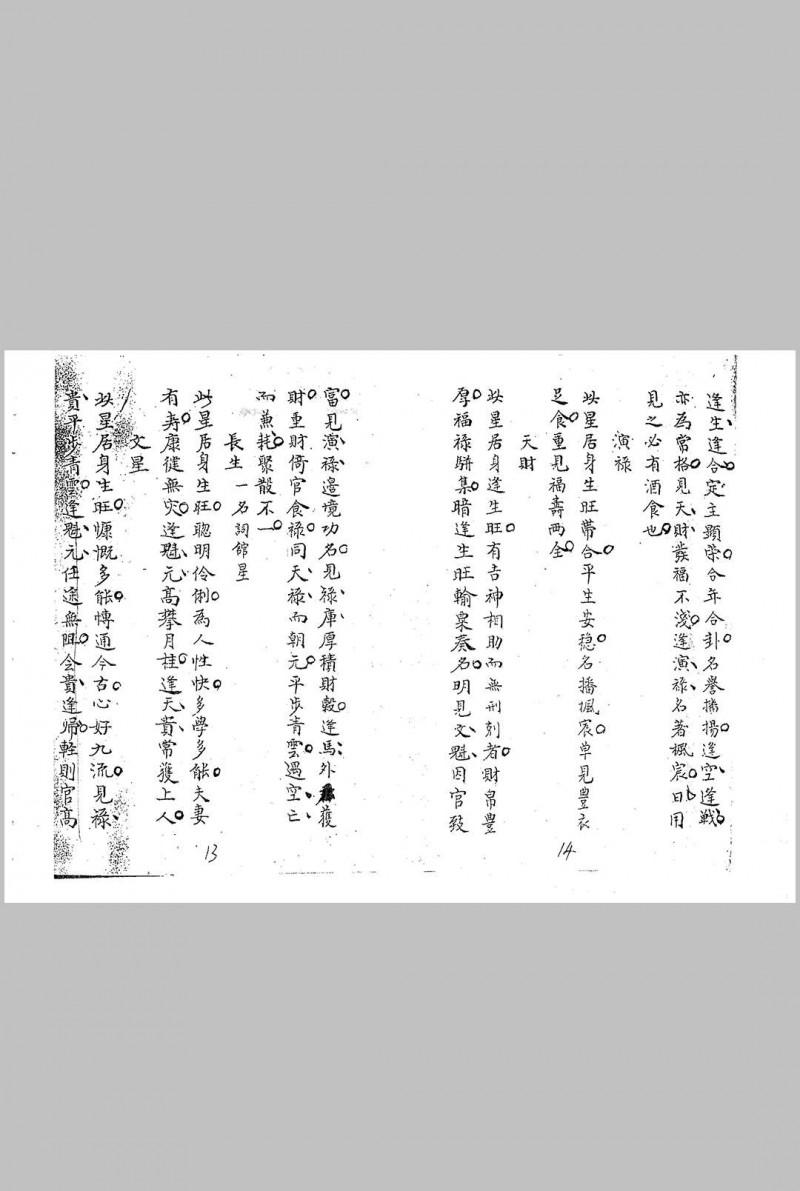 逢生逢合定主顯榮合年合卦名譽播揚逢空逢戰
亦為常格見天財發福不淺逢演祿名著楓宸日用
見之必有酒食也
演祿
此星居身生旺帶合平生安穩名播楓宸單見豊衣
足食重見福壽兩全
天財
此星居身逢生旺有吉神相助而無刑剋者財帛豊
厚福祿駢集暗逢生旺輸粟奏名明見文魁因官致
14
富見演祿邊境功名見祿庫厚積財穀逢馬外獲
財重財倚官食祿同天祿而朝元平步青雲遇空亡
而兼耗聚散不一
長生一名詞館星
此星居身生旺聰明伶俐為人性快多學多能夫妻
有壽康健無災逢魁元高攀月桂逢天貴常獲上人
文星
此星居身生旺慷慨多能博通今古心好九流見祿
貴平步青雲逢魁元仕途無阻会貴逢歸輕則官高
13